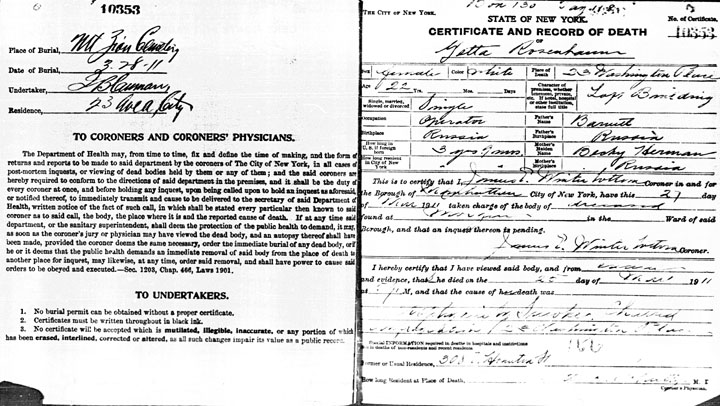 10353
Place of Burial, Mt Zion Cemetery
Date of Burial, 3-28-11
Undertaker,
Residence, 23 Ave A City
TO CORONERS AND CORONERS' PHYSICIANS.
The Department of Health may, from time to time, fix and define the time of making, and the form of
returns and reports to be made to said department by the coroners of The City of New York, in all cases of
post-mortem inquests, or viewing of dead bodies held by them or any of them; and the said coroners are
hereby required to conform to the directions of said department in the premises, and it shall be the duty of
every coroner at once, and before holding any inquest, upon being called upon to hold an inquest as aforesaid,
or notified thereof, to immediately transmit and cause to be delivered to the secretary of said Department of
Health, written notice of the fact of such call, in which shall be stated every particular then known to said
coroner as to said call, the body, the place where it is and the reported cause of death. If at any time said
department, or the sanitary superintendent, shall deem the protection of the public health to demand, it may,
as soon as the coroner's jury or physician may have viewed the dead body, and an autopsy thereof shall have
been made, provided the coroner deems the same necessary, order the immediate burial of any dead body, or if
he or it deems that the public health demands an immediate removal of said body from the place of death to
another place for inquest, may likewise, at any time, order said removal, and shall have power to cause said
orders to be obeyed and executed.—Sec. 1203, Chap. 466, Laws 1901.
TO UNDERTAKERS.
1. No burial permit can be obtained without a proper certificate.
2. Certificates must be written throughout in black ink.
3. No certificate will be accepted which is mutilated, illegible, inaccurate, or any portion of which
has been erased, interlined, corrected or altered, as all such changes impair its value as a public record.
THE CITY OF NEW YORK.
STATE OF NEW YORK.
No. of Certificate.
CERTIFICATE AND RECORD OF DEATH
10353
of Yetta Rosenbaum
Sex female Color White Place of Death 23 Washington Place
Age 22 Yrs. Mos. Days
Character of premises, whether tenement, private, etc. If hotel, hospital or other institution, state full title Loft Building
Single, married, widowed or divorced Single
Occupation Operator Father's Name Barnett
Birthplace Russia Father's Birthplace Russia
How long in U. S. if foreign born 3 yrs 9 mos Mother's Maiden Name Becky Herman
How long resident in City of New York Mother's Birthplace Russia
This is to certify that I, James E. Winterbottom Coroner in and for
the Borough of Manhattan City of New York, have this 27 day
of Mar 1911 taken charge of the body of deceased
found at Morgue in the Ward of said
Borough, and that an inquest thereon is pending.
James E. Winterbottom Coroner.
I hereby certify that I have viewed said body, and from
and evidence, that she died on the 25 day of Mar 1911
at M., and that the cause of her death was
Asphyxia by Smoke,
23 Washington Place
Special INFORMATION required in deaths in hospitals and institutions
and in deaths of non-residents and recent residents.
Former or Usual Residence, 303 E Houston St
How long Resident at Place of Death, M. D.
Coroner's Physician.